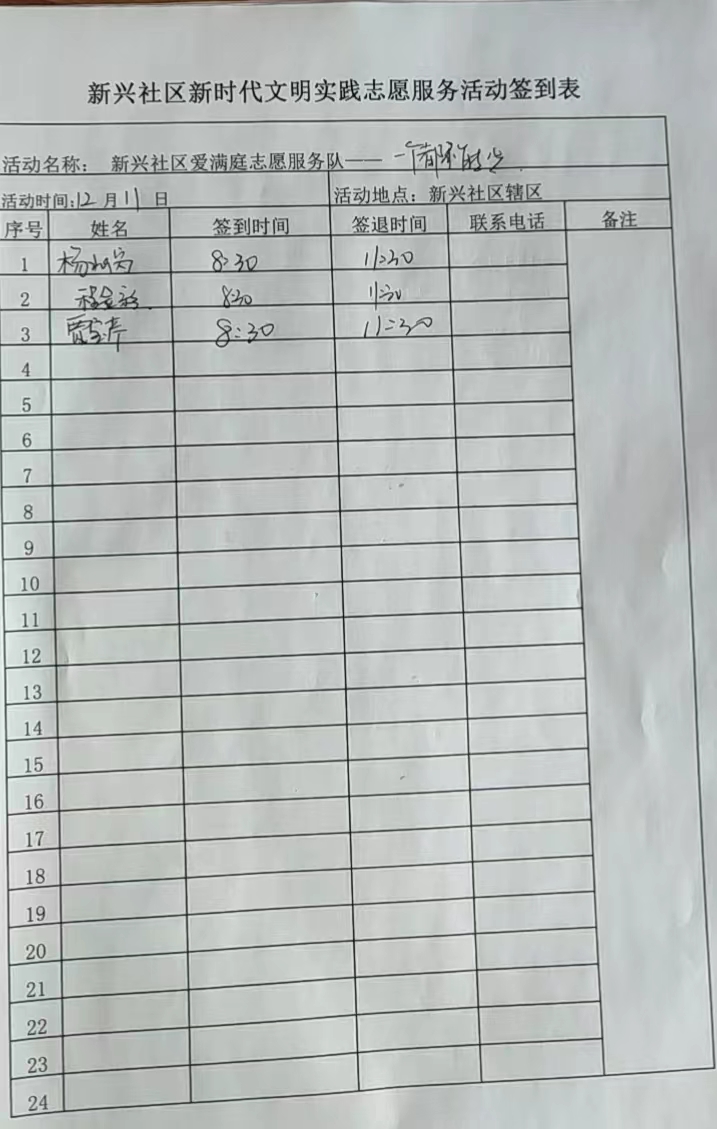 新兴社区新时代文明实践志愿服务活动签到表
活动名称： 新兴社区爱满庭志愿服务队—— 一个都不能少
活动时间:12 月 11 日 活动地点：新兴社区辖区
序号 姓名 签到时间 签退时间 联系电话 备注
1 杨 8:30 11:30
2 8:30 11:30
3 贾 8:30 11:30
4
5
6
7
8
9
10
11
12
13
14
15
16
17
18
19
20
21
22
23
24